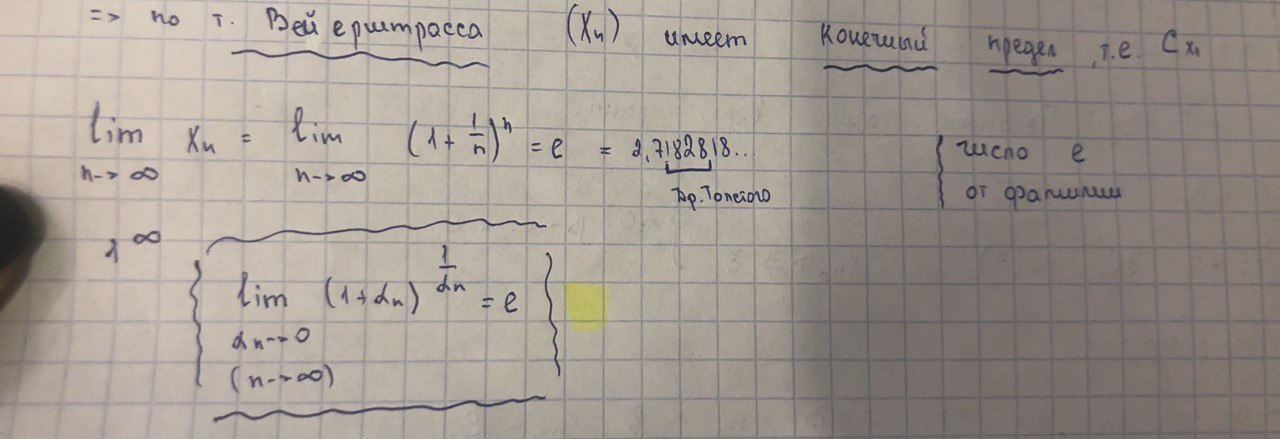 => по т. Вейерштрасса (Xn) имеет конечный предел, т.е. Сх,
lim Xn = lim (1 + 1/n)^n = e = 2,7182818...
n->∞ n->∞
Др. Толстого
число e
от фамилии
1^∞
lim (1+αn)^(1/αn) = e
αn->0
(n->∞)